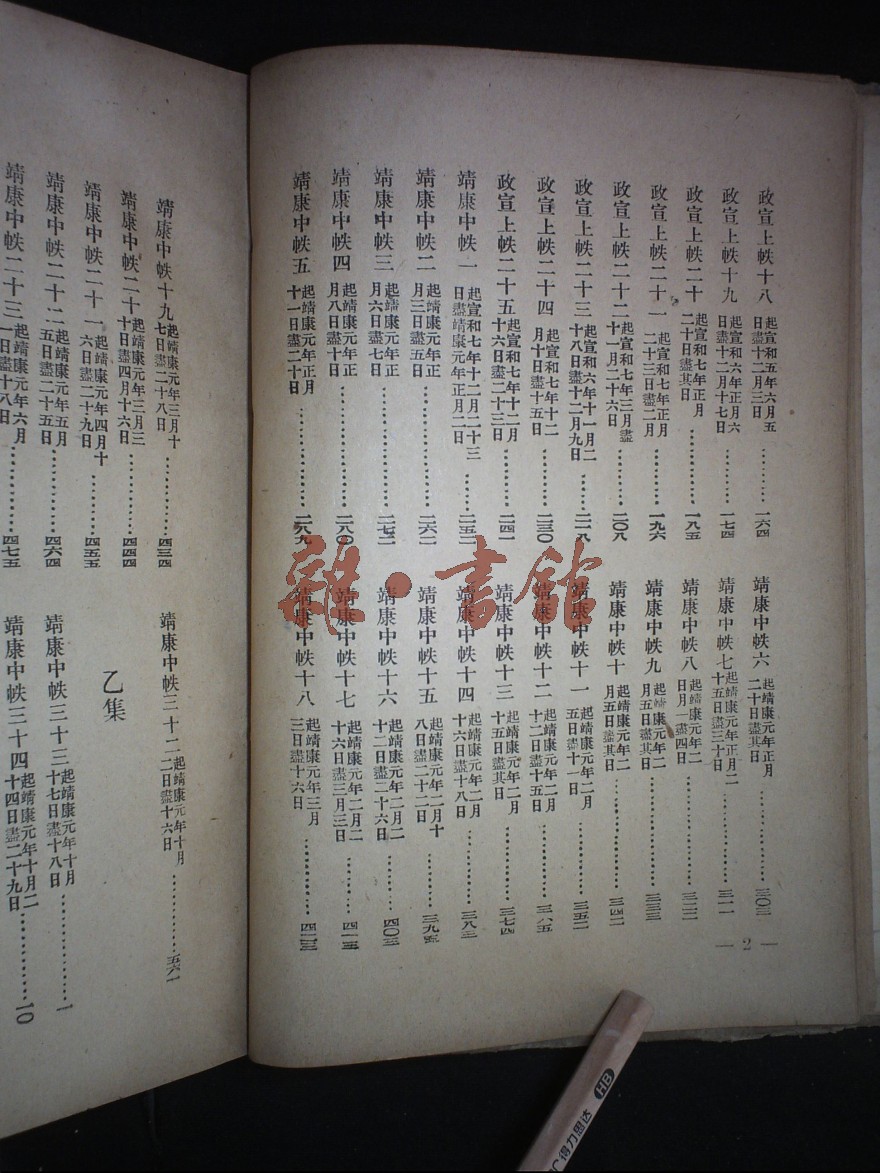 政宣上帙十八 起宣和五年六月五日盡十二月三日 一六四
政宣上帙十九 起宣和六年正月六日盡十二月十七日 一七四
政宣上帙二十 起宣和七年正月二十日盡其日 一八五
政宣上帙二十一 起宣和七年正月二十三日盡二月 一九六
政宣上帙二十二 起宣和七年三月盡十一月二十六日 二〇八
政宣上帙二十三 起宣和六年十一月二十八日盡十二月九日 二一八
政宣上帙二十四 起宣和七年十二月十日盡十五日 二三〇
政宣上帙二十五 起宣和七年十二月十六日盡二十三日 二四一
靖康中帙一 起宣和七年十二月二十三日盡靖康元年正月二日 二五二
靖康中帙二 起靖康元年正月三日盡五日 二六二
靖康中帙三 起靖康元年正月六日盡七日 二七二
靖康中帙四 起靖康元年正月八日盡十日 二八〇
靖康中帙五 起靖康元年正月十一日盡二十日 二八九
靖康中帙六 起靖康元年正月二十日盡其日 三〇二
靖康中帙七 起靖康元年正月二十五日盡三十日 三一一
靖康中帙八 起靖康元年二月一日盡四日
靖康中帙九 起靖康元年二月五日盡其日 三三三
靖康中帙十 起靖康元年二月五日盡其日 三四二
靖康中帙十一 起靖康元年二月五日盡十一日 三五二
靖康中帙十二 起靖康元年二月十二日盡十五日 三六五
靖康中帙十三 起靖康元年二月十五日盡其日 三七四
靖康中帙十四 起靖康元年二月十六日盡十八日 三八三
靖康中帙十五 起靖康元年二月十八日盡二十二日 三九五
靖康中帙十六 起靖康元年二月二十二日盡二十六日 四〇三
靖康中帙十七 起靖康元年二月二十六日盡三月三日 四一五
靖康中帙十八 起靖康元年三月三日盡十六日 四二三
— 2 —
靖康中帙十九 起靖康元年三月十七日盡二十八日 四三四
靖康中帙二十 起靖康元年三月三十日盡四月十六日 四四四
靖康中帙二十一 起靖康元年四月十六日盡二十九日 四五五
靖康中帙二十二 起靖康元年五月五日盡二十五日 四六四
靖康中帙二十三 起靖康元年六月一日盡十八日 四七五
靖康中帙三十二 起靖康元年十月二日盡十六日 五六一
乙集
靖康中帙三十三 起靖康元年十月十七日盡十八日 一
靖康中帙三十四 起靖康元年十月二十四日盡二十九日 一〇
雜·書館
得力思达 HB